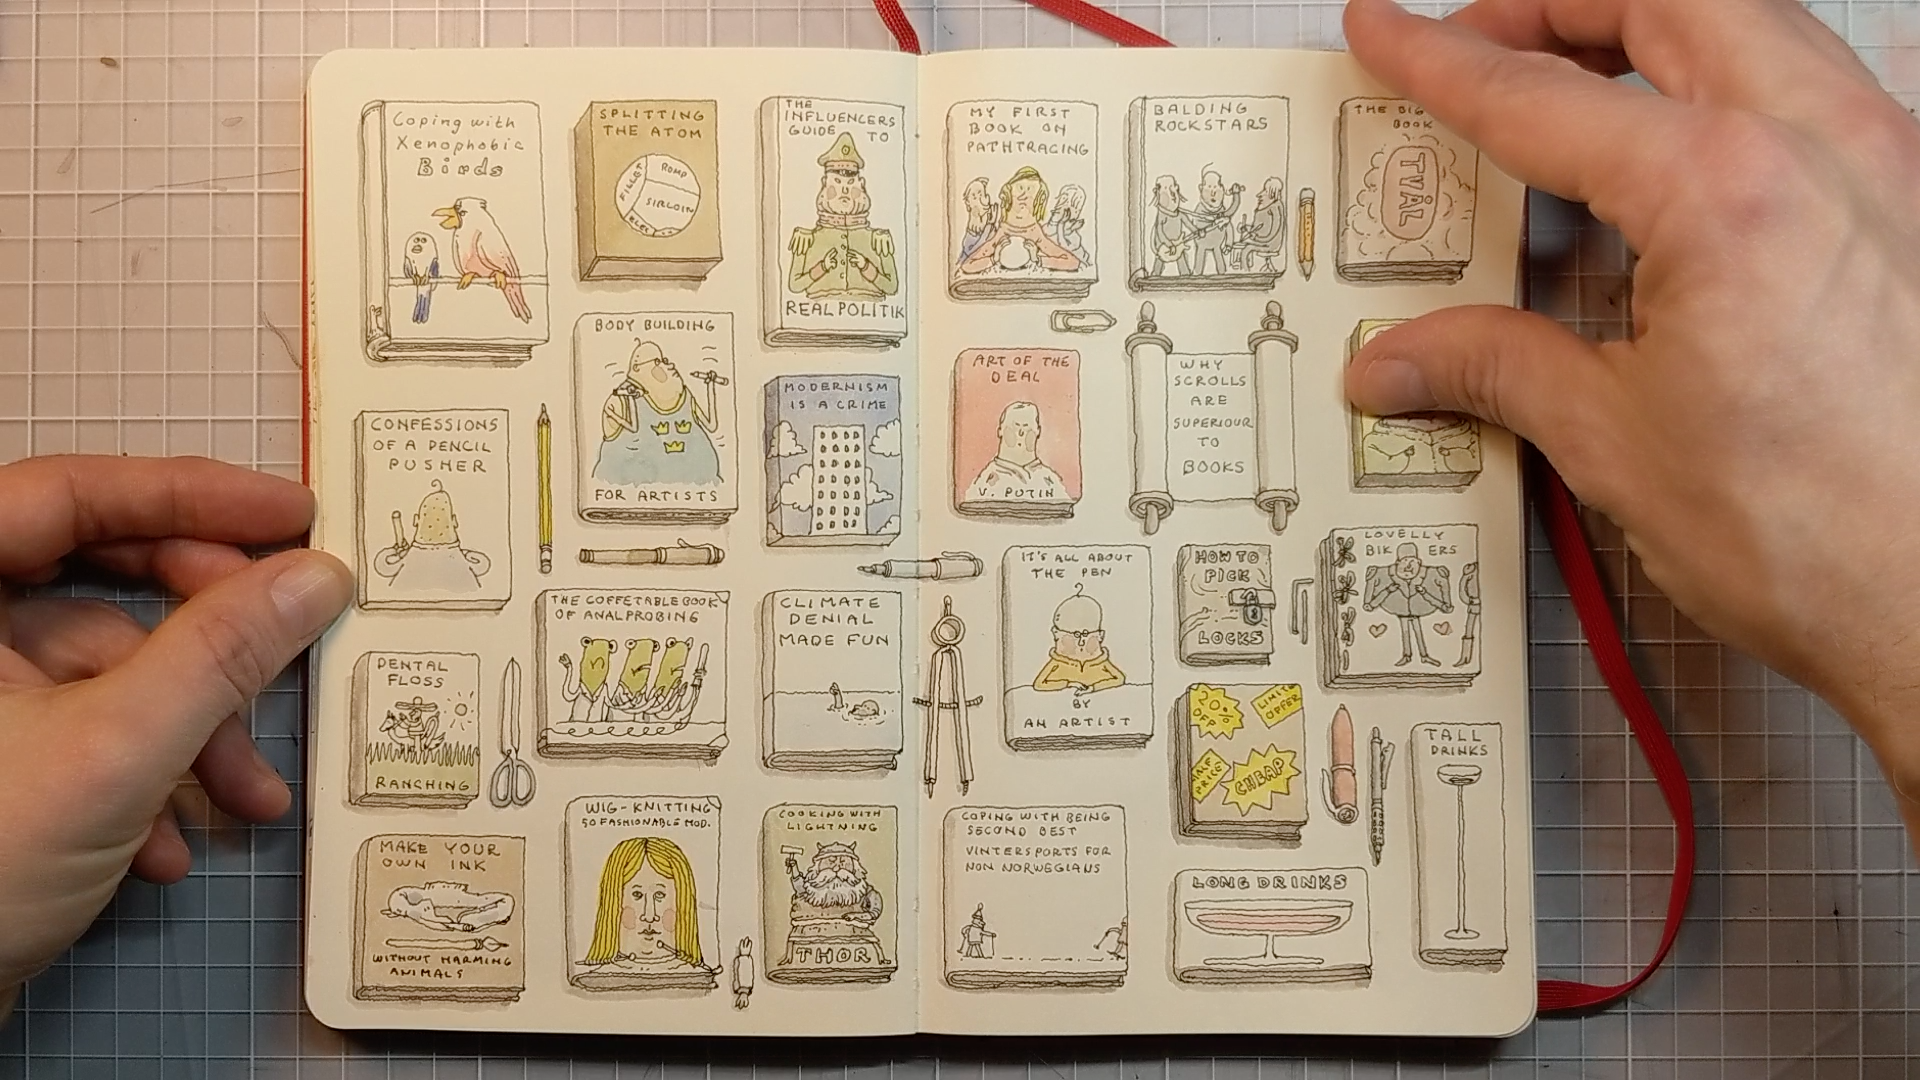 Coping with
Xenophobic
Birds
SPLITTING
THE ATOM
FILLET
ROMP
SIRLOIN
THE
INFLUENCERS
GUIDE TO
REALPOLITIK
BODY BUILDING
FOR ARTISTS
MODERNISM
IS A CRIME
CONFESSIONS
OF A PENCIL
PUSHER
THE COFFETABLE BOOK
OF ANALPROBING
CLIMATE
DENIAL
MADE FUN
DENTAL
FLOSS
RANCHING
WIG-KNITTING
50 FASHIONABLE MOD.
COOKING WITH
LIGHTNING
THOR
MAKE YOUR
OWN INK
WITHOUT HARMING
ANIMALS
MY FIRST
BOOK ON
PATHTRACING
BALDING
ROCKSTARS
THE BIG
BOOK
TVÅL
ART OF THE
DEAL
V. PUTIN
WHY
SCROLLS
ARE
SUPERIOUR
TO
BOOKS
IT'S ALL ABOUT
THE PEN
BY
AN ARTIST
HOW TO
PICK
LOCKS
LOVELLY
BIKERS
20%
OFF
LIMITED
OFFER
HALF
PRICE!
CHEAP
TALL
DRINKS
COPING WITH BEING
SECOND BEST
VINTERSPORTS FOR
NON NORWEGIANS
LONG DRINKS